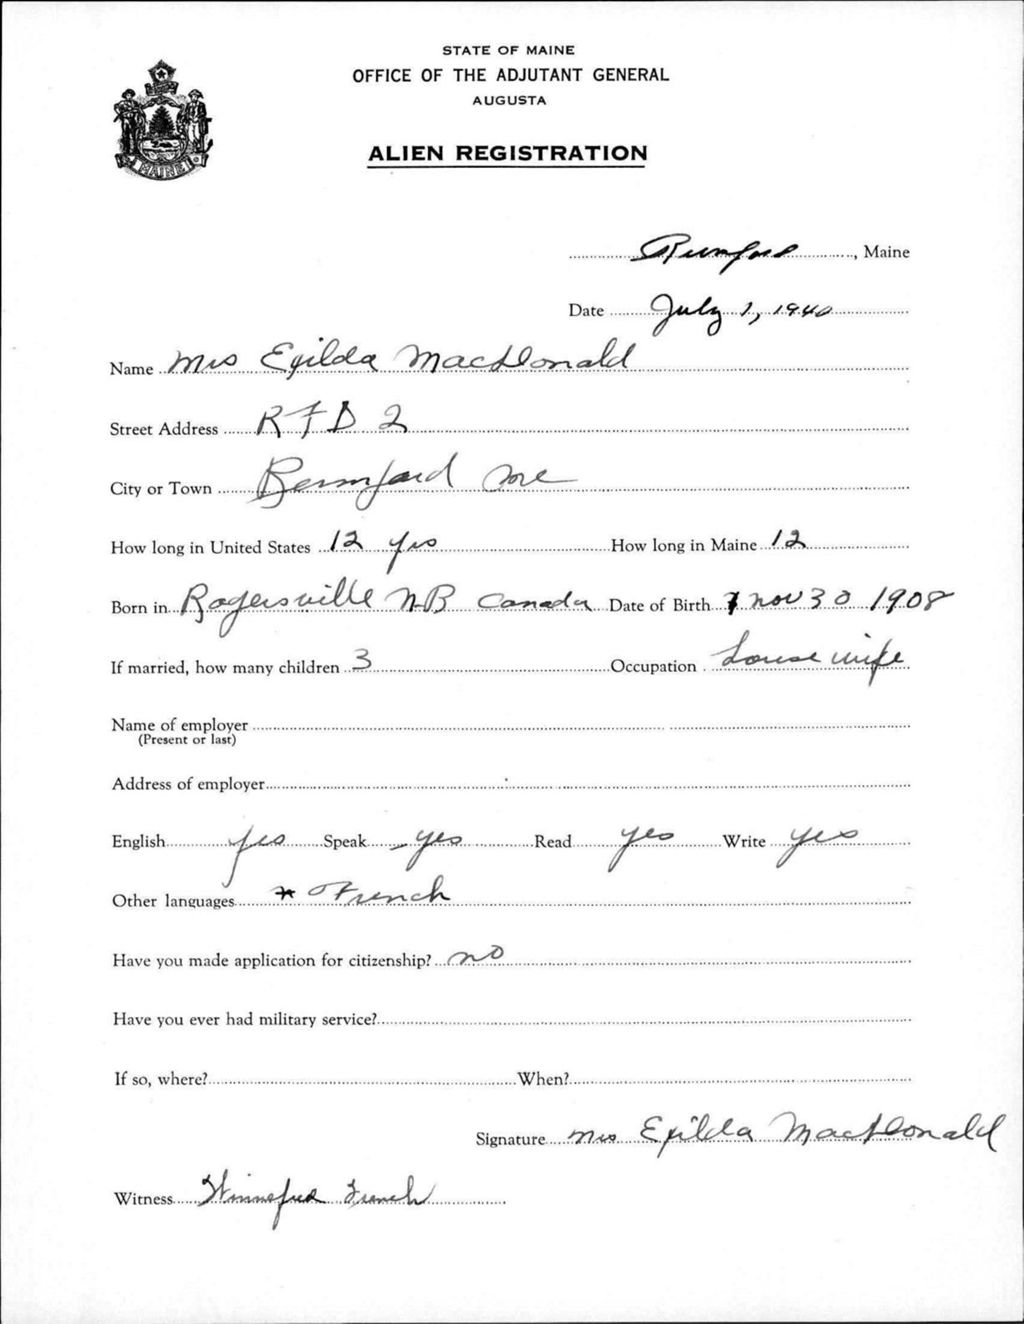 STATE OF MAINE
OFFICE OF THE ADJUTANT GENERAL
AUGUSTA
MAINE
ALIEN REGISTRATION
Rumford, Maine
Date July 1, 1940
Name Mrs Exilda MacDonald
Street Address RFD 2
City or Town Rumford Me
How long in United States 12 yrs How long in Maine 12
Born in Rogersville N-B Canada Date of Birth Nov 30 1908
If married, how many children 3 Occupation House wife
Name of employer
(Present or last)
Address of employer
English yes Speak yes Read yes Write yes
Other languages French
Have you made application for citizenship? no
Have you ever had military service?
If so, where? When?
Signature Mrs Exilda MacDonald
Witness Winnefred French